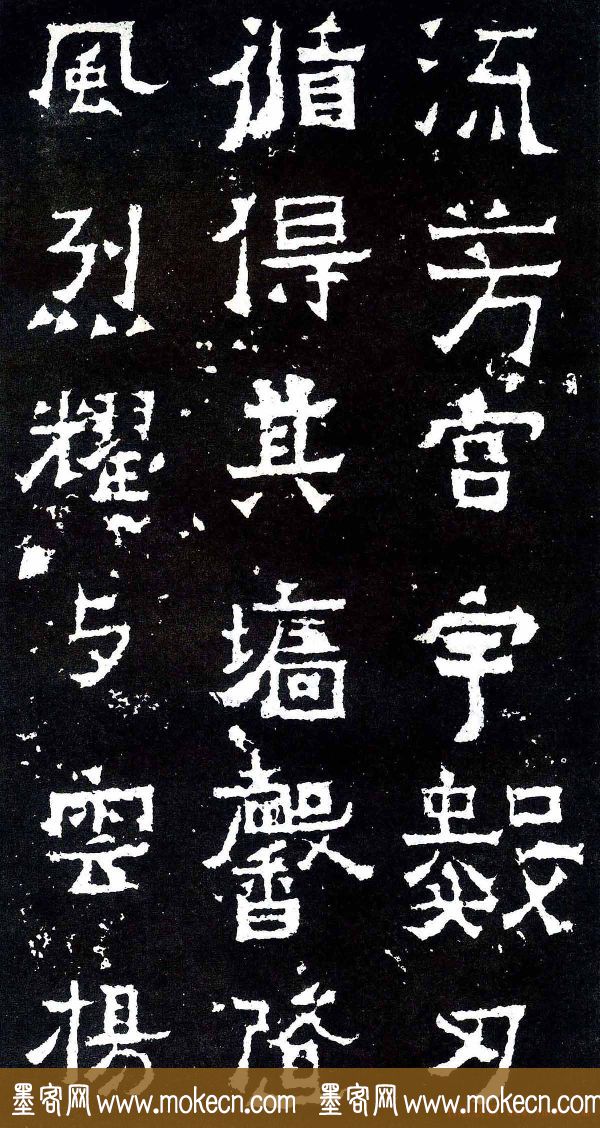 流芳宮宇數刃
循得其墻馨隨
風烈耀与雲揚
墨客网 www.mokecn.com 墨客网 www.mokecn.com